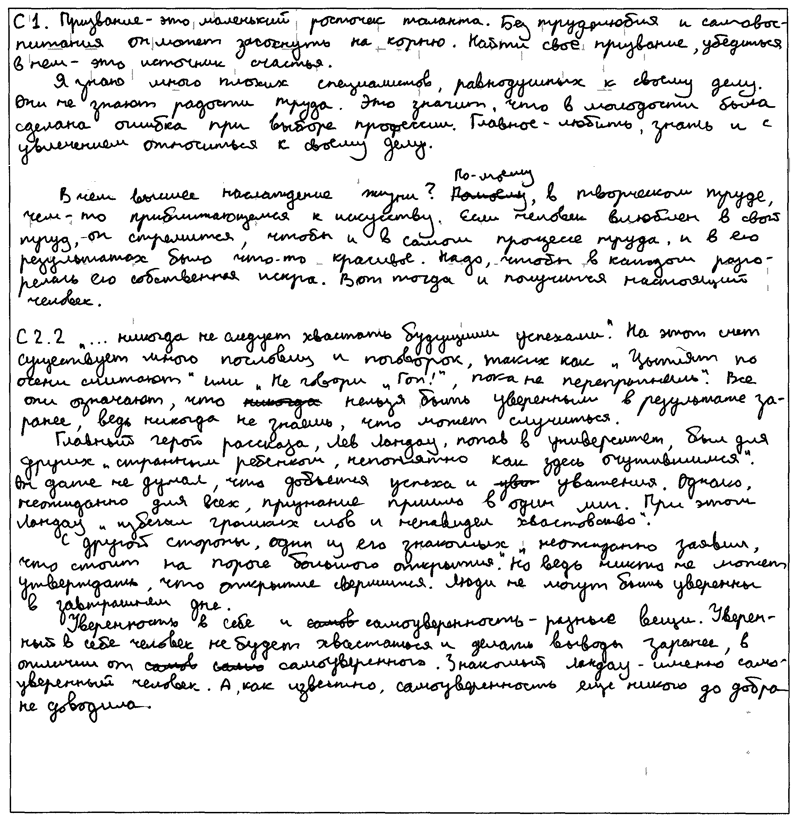 С1. Призвание - это маленький росточек таланта. Без трудолюбия и самовос-
питания он может засохнуть на корню. Найти своё призвание, убедиться
в нем - это источник счастья.
Я знаю много плохих специалистов, равнодушных к своему делу.
Они не знают радости труда. Это значит, что в молодости была
сделана ошибка при выборе профессии. Главное - любить, знать и с
увлечением относиться к своему делу.
По-моему
В чем высшее наслаждение жизни? Помоему, в творческом труде,
чем-то приближающемся к искусству. Если человек влюблен в свой
труд, он стремится, чтобы и в самом процессе труда, и в его
результатах было что-то красивое. Надо, чтобы в каждом разго-
релась его собственная искра. Вот тогда и получится настоящий
человек.
С2.2 „... никогда не следует хвастать будущими успехами". На этот счет
существует много пословиц и поговорок, таких как „Цыплят по
осени считают" или „Не говори „Гоп!", пока не перепрыгнешь". Все
они означают, что никогда нельзя быть уверенным в результате за-
ранее, ведь никогда не знаешь, что может случиться.
Главный герой рассказа, Лев Ландау, попав в университет, был для
других „странным ребенком, непонятно как здесь очутившимся".
Он даже не думал, что добьется успеха и уважения. Однако,
неожиданно для всех, признание пришло в один миг. При этом
Ландау „избегал громких слов и ненавидел хвастовство".
С другой стороны, один из его знакомых „неожиданно заявил,
что стоит на пороге большого открытия". Но ведь никто не может
утверждать, что открытие свершится. Люди не могут быть уверенны
в завтрашнем дне.
Уверенность в себе и самов самоуверенность - разные вещи. Уверен-
ный в себе человек не будет хвастаться и делать выводы заранее, в
отличии от самов само самоуверенного. Знакомый Ландау - именно само-
уверенный человек. А, как известно, самоуверенность еще никого до добра
не доводила.